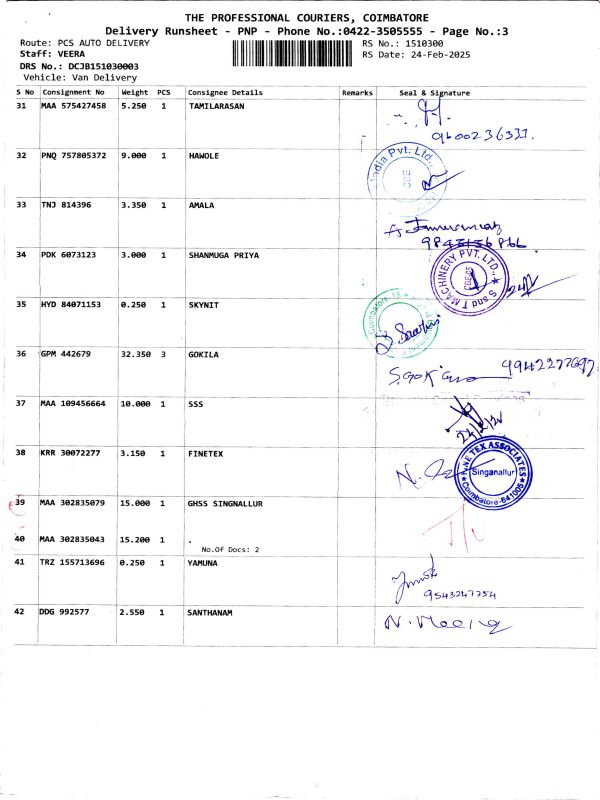 THE PROFESSIONAL COURIERS, COIMBATORE
Delivery Runsheet - PNP - Phone No.:0422-3505555 - Page No.:3
Route: PCS AUTO DELIVERY RS No.: 1510300
Staff: VEERA RS Date: 24-Feb-2025
DRS No.: DCJB151030003
Vehicle: Van Delivery
S No Consignment No Weight PCS Consignee Details Remarks Seal & Signature
31 MAA 575427458 5.250 1 TAMILARASAN
9600236331.
32 PNQ 757805372 9.000 1 HAWOLE
India Pvt. Ltd.,
CBE
33 TNJ 814396 3.350 1 AMALA
34 PDK 6073123 3.000 1 SHANMUGA PRIYA
S and T MACHINERY PVT. LTD.,
35 HYD 84071153 0.250 1 SKYNIT
Coimbatore-15
36 GPM 442679 32.350 3 GOKILA
9942277697
37 MAA 109456664 10.000 1 SSS
38 KRR 30072277 3.150 1 FINETEX
FINE TEX ASSOCIATES
Singanallur
Coimbatore-641005
39 MAA 302835079 15.000 1 GHSS SINGNALLUR
40 MAA 302835043 15.200 1 .
No.Of Docs: 2
41 TRZ 155713696 0.250 1 YAMUNA
9543247754
42 DDG 992577 2.550 1 SANTHANAM